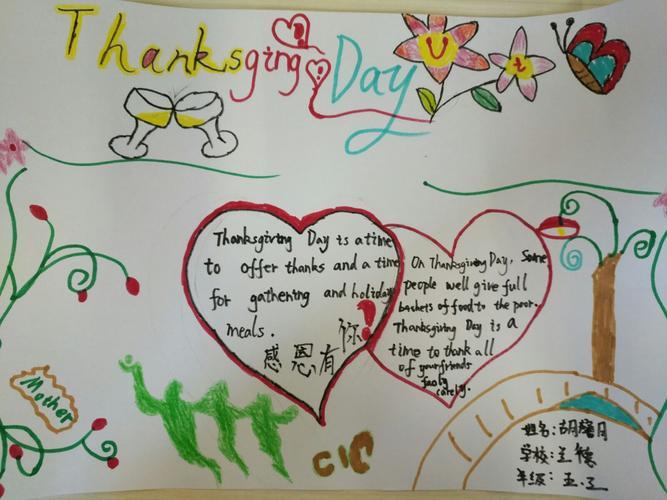 Thanksging Day
Thanksgiving Day is a time
to offer thanks and a time
for gathering and holiday
meals.
感恩有你!
On Thanksgiving Day, Some
people well give full
baskets of food to the poor.
Thanksgiving Day is a
time to thank all
of your friends
Mother
姓名:胡 月
学校:
年级:五.